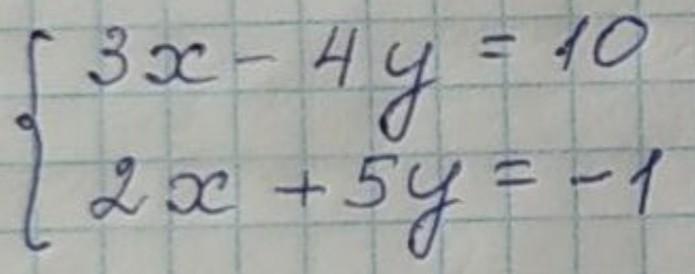 3x - 4y = 10
2x + 5y = -1